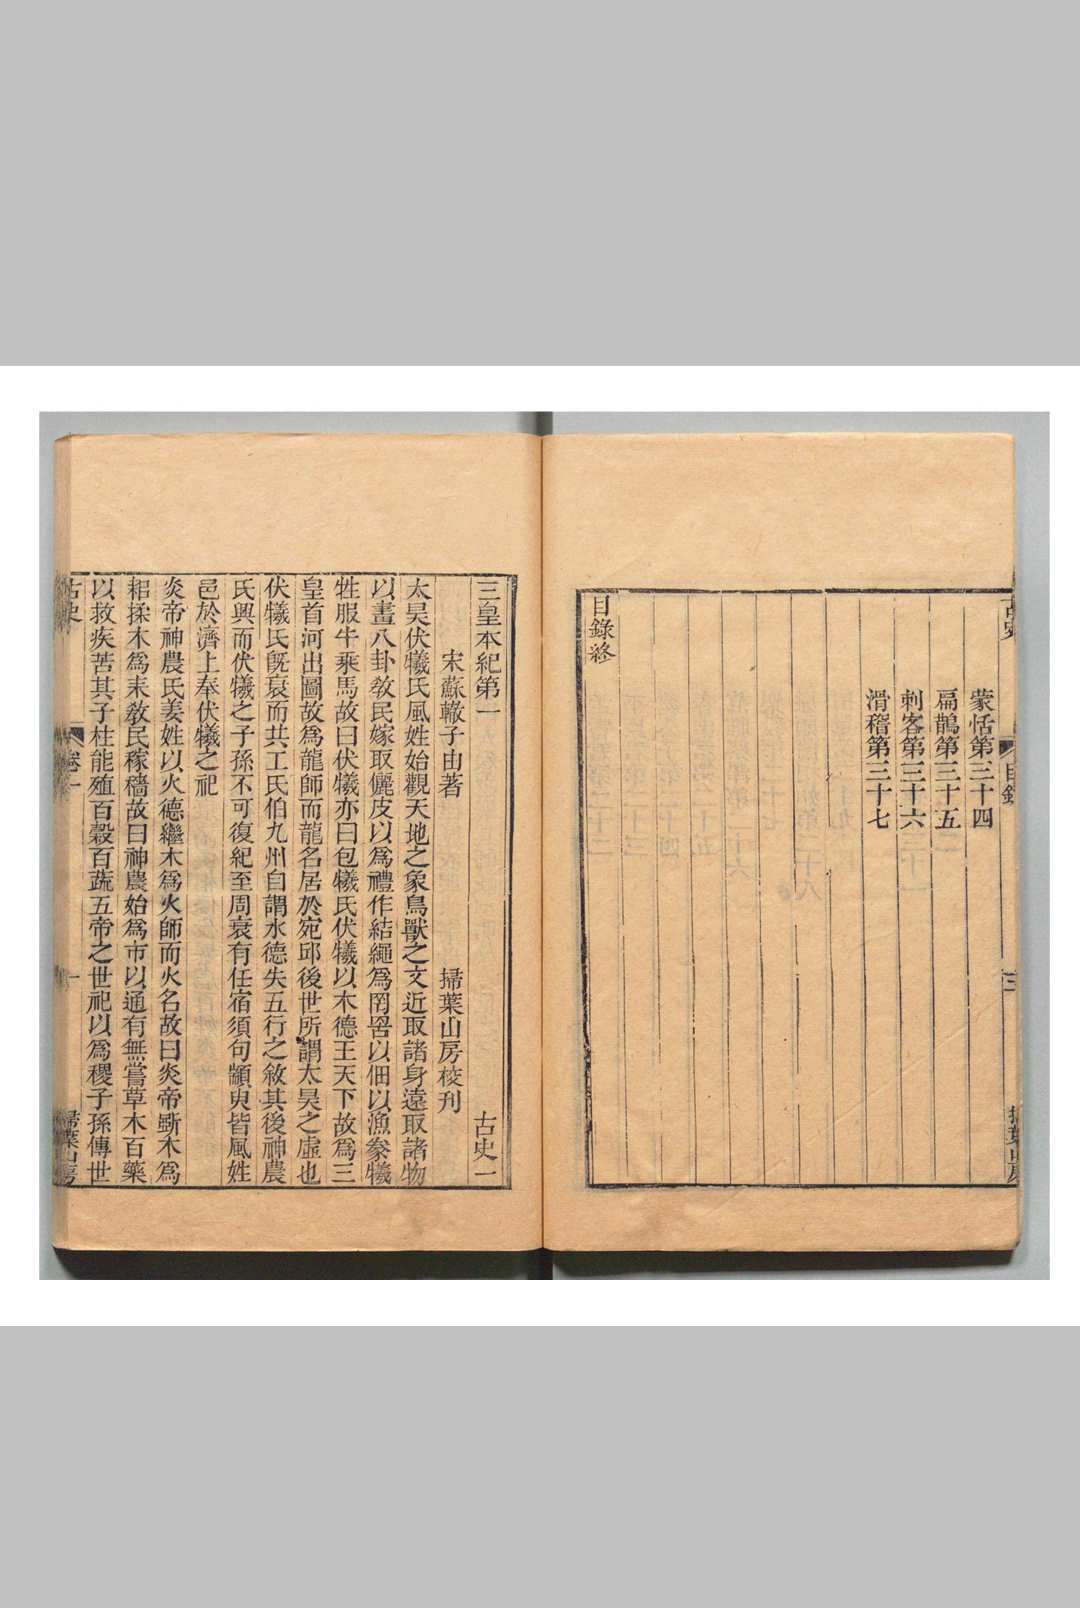 古史
目錄
三
掃葉山房
蒙恬第三十四
扁鵲第三十五
刺客第三十六
滑稽第三十七
目錄終
三皇本紀第一
古史一
宋蘇轍子由著
掃葉山房校刊
太昊伏犧氏風姓始觀天地之象鳥獸之文近取諸身遠取諸物
以畫八卦敎民嫁取儷皮以爲禮作結繩爲罔罟以佃以漁豢犧
牲服牛乘馬故曰伏犧亦曰包犧氏伏犧以木德王天下故爲三
皇首河出圖故爲龍師而龍名居於宛邱後世所謂太昊之虛也
伏犧氏旣衰而共工氏伯九州自謂水德失五行之敘其後神農
氏興而伏犧之子孫不可復紀至周衰有任宿須句顓臾皆風姓
邑於濟上奉伏犧之祀
炎帝神農氏姜姓以火德繼木爲火師而火名故曰炎帝斲木爲
耜揉木爲耒敎民稼穡故曰神農始爲市以通有無嘗草木百藥
以救疾苦其子柱能殖百穀百蔬五帝之世祀以爲稷子孫傳世
古史
卷一
一
掃葉山房